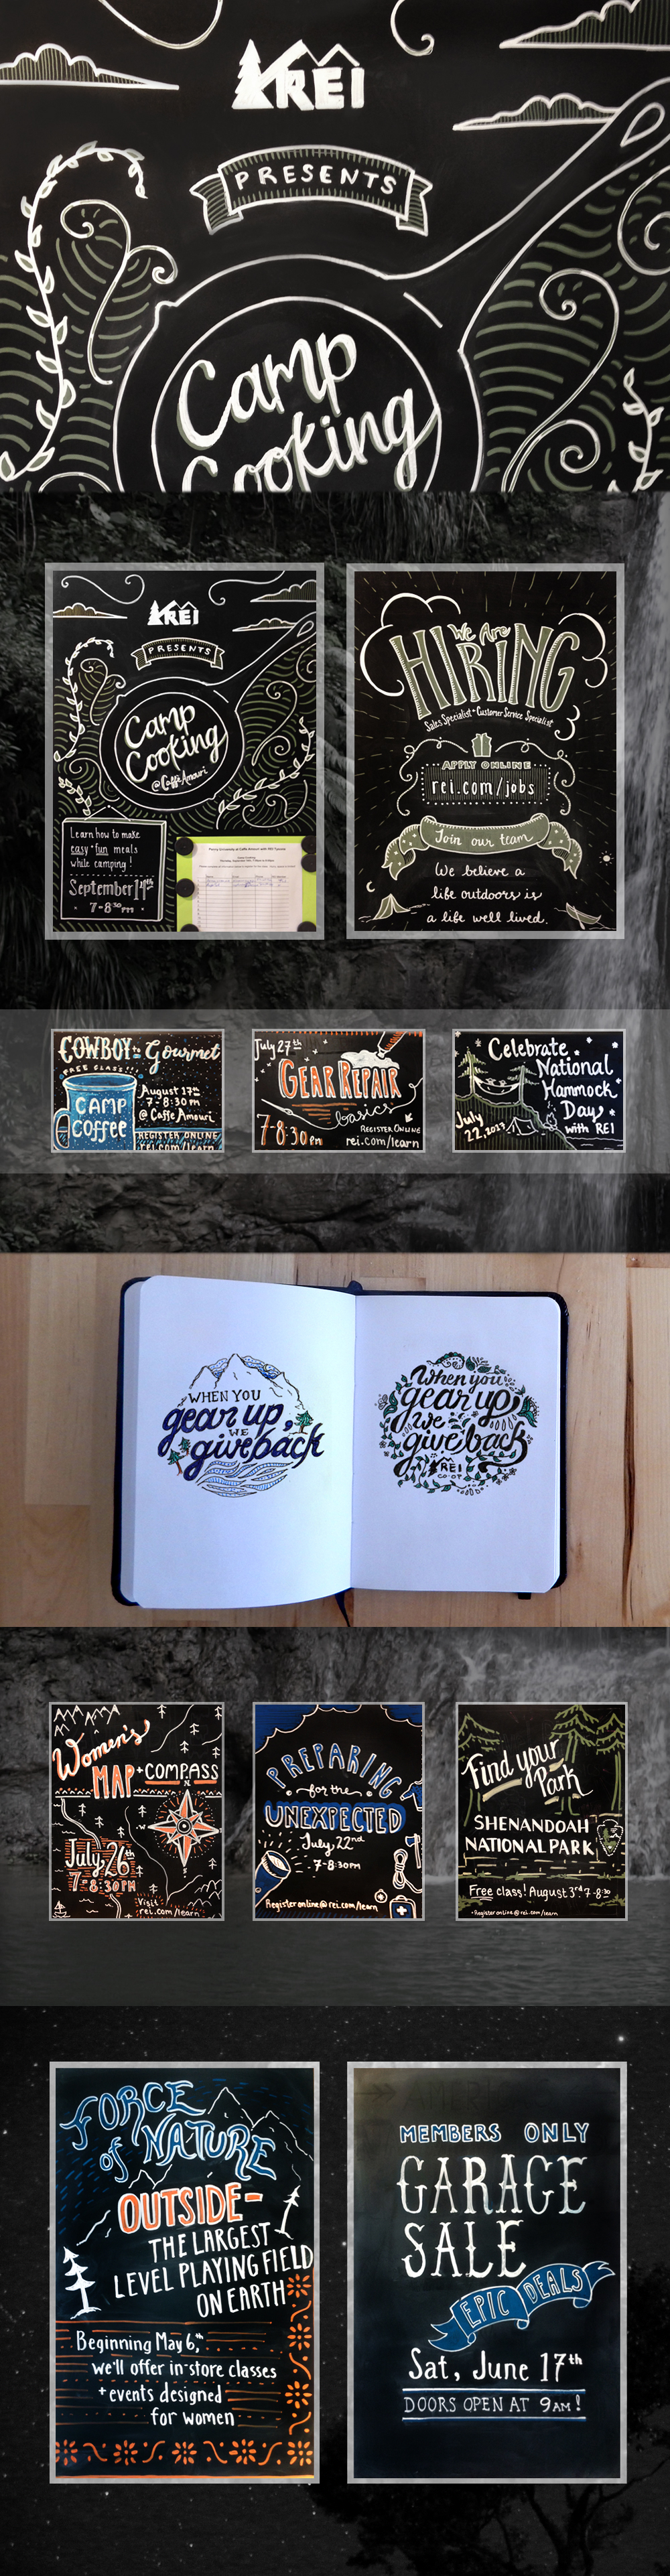 REI
PRESENTS
Camp
Cooking
REI
PRESENTS
Camp
Cooking
@ Caffe Amouri
Learn how to make
easy + fun meals
while camping!
September 14th
7-8:30 pm
We Are
HIRING
Sales Specialist + Customer Service Specialist
APPLY ONLINE
rei.com/jobs
Join our team
We believe a
life outdoors is
a life well lived.
COWBOY to Gourmet
FREE CLASS!!
CAMP
COFFEE
August 17th
7-8:30 m
@ Caffe Amouri
REGISTER ONLINE
rei.com/learn
July 27th
GEAR REPAIR
basics
7-8:30 pm
REGISTER ONLINE
rei.com/learn
Celebrate
National
Hammock
Day
with REI
July
22, 2017
WHEN YOU
gear up,
WE
give back
When you
gear up
we
give back
REI
CO-OP
Women's
MAP + COMPASS
N
July 26th
7-8:30PM
Visit
rei.com/learn
PREPARING
for the
UNEXPECTED
July 22nd
7-8:30pm
Register online @ rei.com/learn
Find your
Park
SHENANDOAH
NATIONAL PARK
Free class! August 3rd 7-8:30
Register online @ rei.com/learn
FORCE
of NATURE
OUTSIDE-
THE LARGEST
LEVEL PLAYING FIELD
ON EARTH
Beginning May 6th,
we'll offer in-store classes
+ events designed
for women
MEMBERS ONLY
GARAGE
SALE
EPIC DEALS
Sat, June 17th
DOORS OPEN AT 9AM!